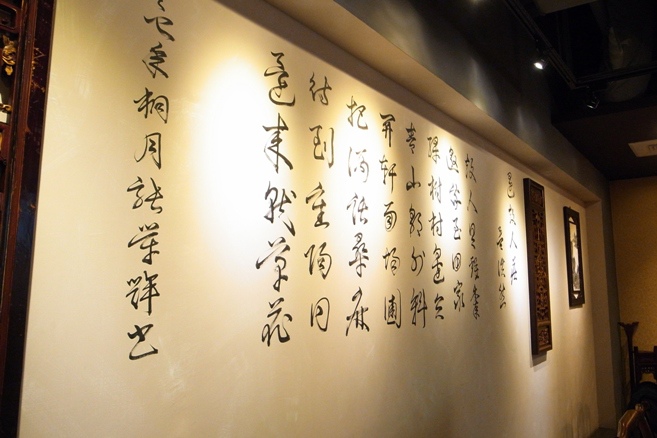 過故人莊
孟浩然
故人具雞黍
邀我至田家
綠樹村邊合
青山郭外斜
開軒面場圃
把酒話桑麻
待到重陽日
還來就菊花
桐月
書